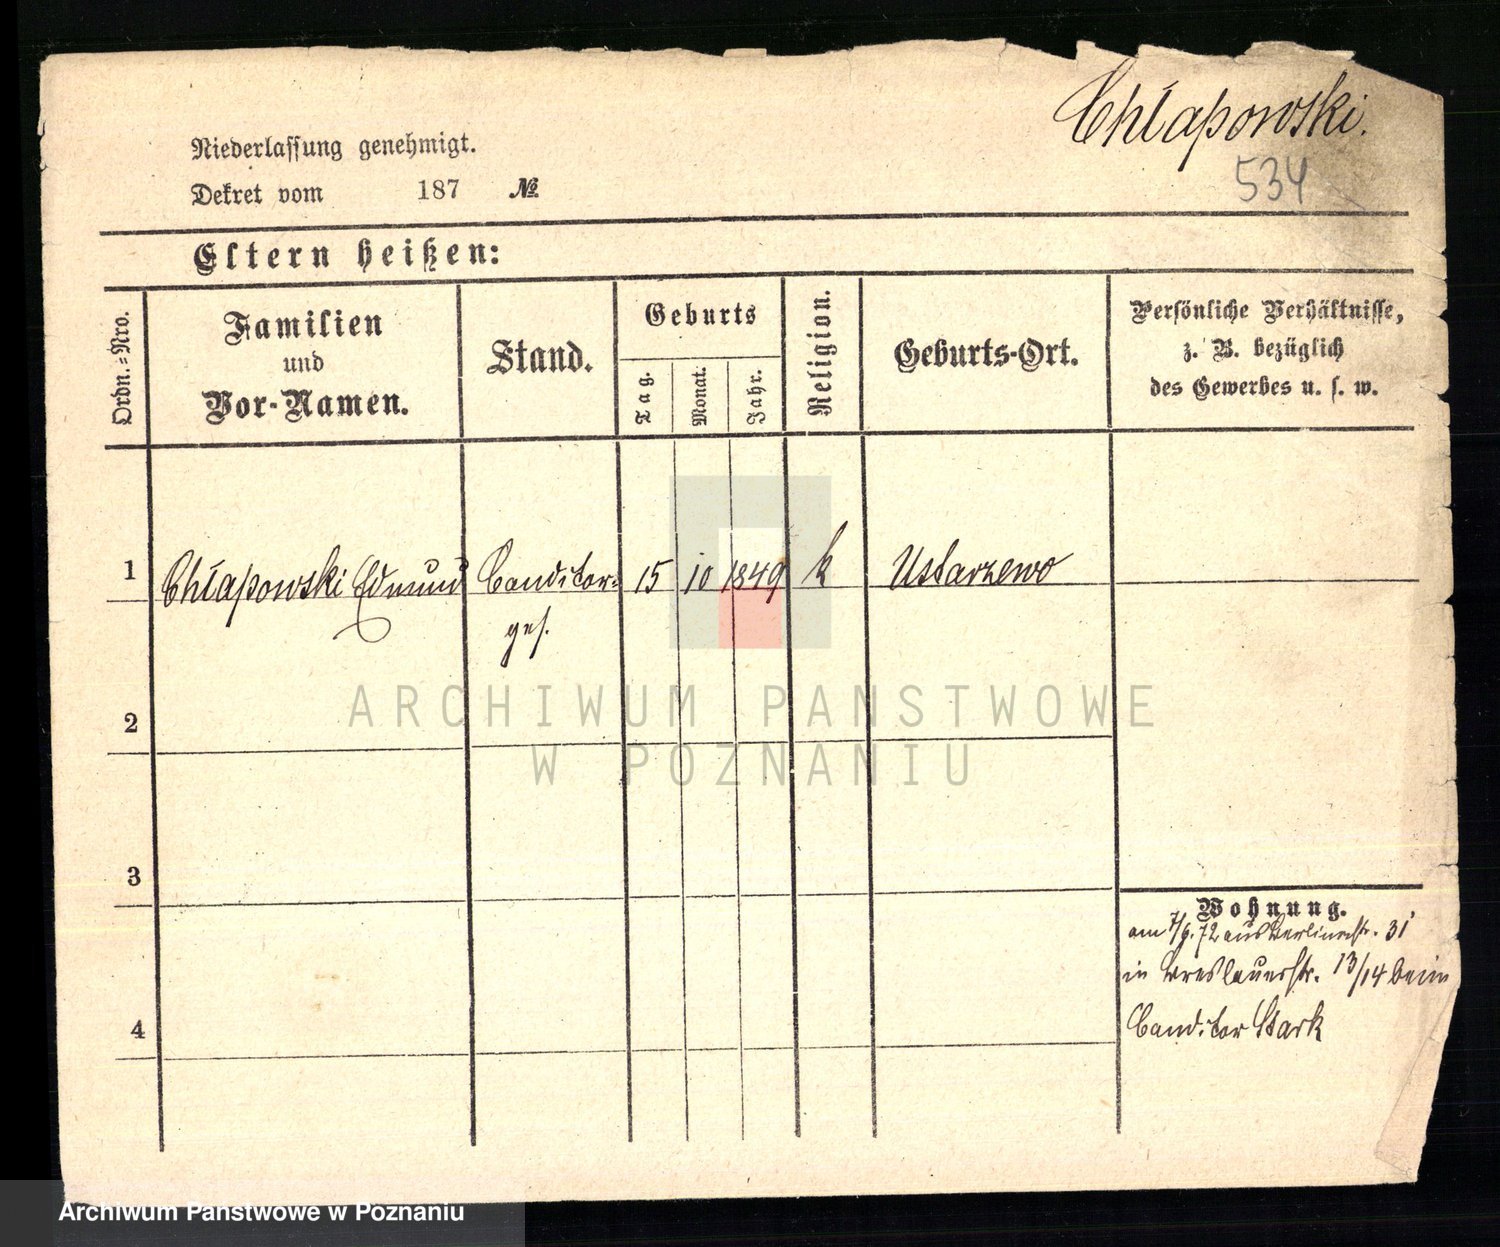 Chłapowski.
534
Niederlassung genehmigt.
Dekret vom 187 №
Eltern heißen:
Ordn.-Nro.
Familien
und
Vor-Namen.
Stand.
Geburts
Tag.
Monat.
Jahr.
Religion.
Geburts-Ort.
Persönliche Verhältnisse,
z. B. bezüglich
des Gewerbes u. s. w.
1 Chłapowski Edmund Conditor= 15 10 1849 k Ustarzewo
ges.
ARCHIWUM PANSTWOWE
W POZNANIU
2
3
4
Wohnung.
am 7/9. 72 aus Berlinerstr. 31
in Breslauerstr. 13/14 beim
Conditor Stark
Archiwum Państwowe w Poznaniu